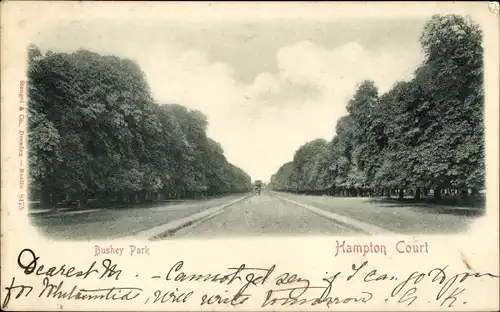 Stengel & Co., Dresden – Berlin 8475
Bushey Park
Hampton Court
Dearest M. - Cannot get say if I can go to
for Whitsuntide. Will write tomorrow. G. K.